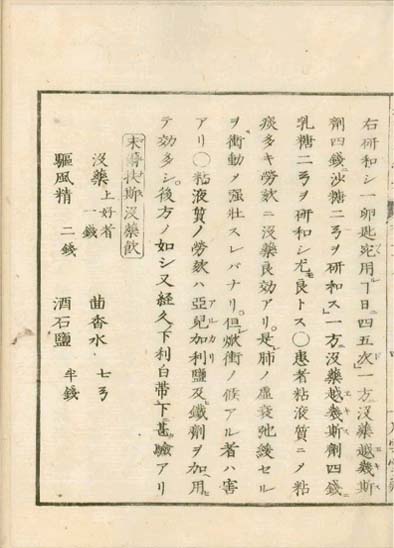 右研和シ一卵匙宛用丁日四五次」一方没薬越幾斯
劑四錢沙糖二ヲ研和ス」一方没薬越幾斯劑四錢
乳糖二ヲ研和シ尤良トス○患者粘液質ニメ粘
痰多キ勞欬ニ没薬良効アリ。是肺ノ虚衰弛緩セル
ヲ衝動メ強壮スレバナリ。但焮衝ノ候アル者ハ害
アリ○粘液質ノ勞欬ハ亞兒加利鹽及鐵劑ヲ加用
テ効多シ。後方ノ如シ又経久下利白帯下甚驗アリ
扶斯没薬飲
没薬 上好者 一錢 茴香水 七
驅風精 二錢 酒石鹽 半錢